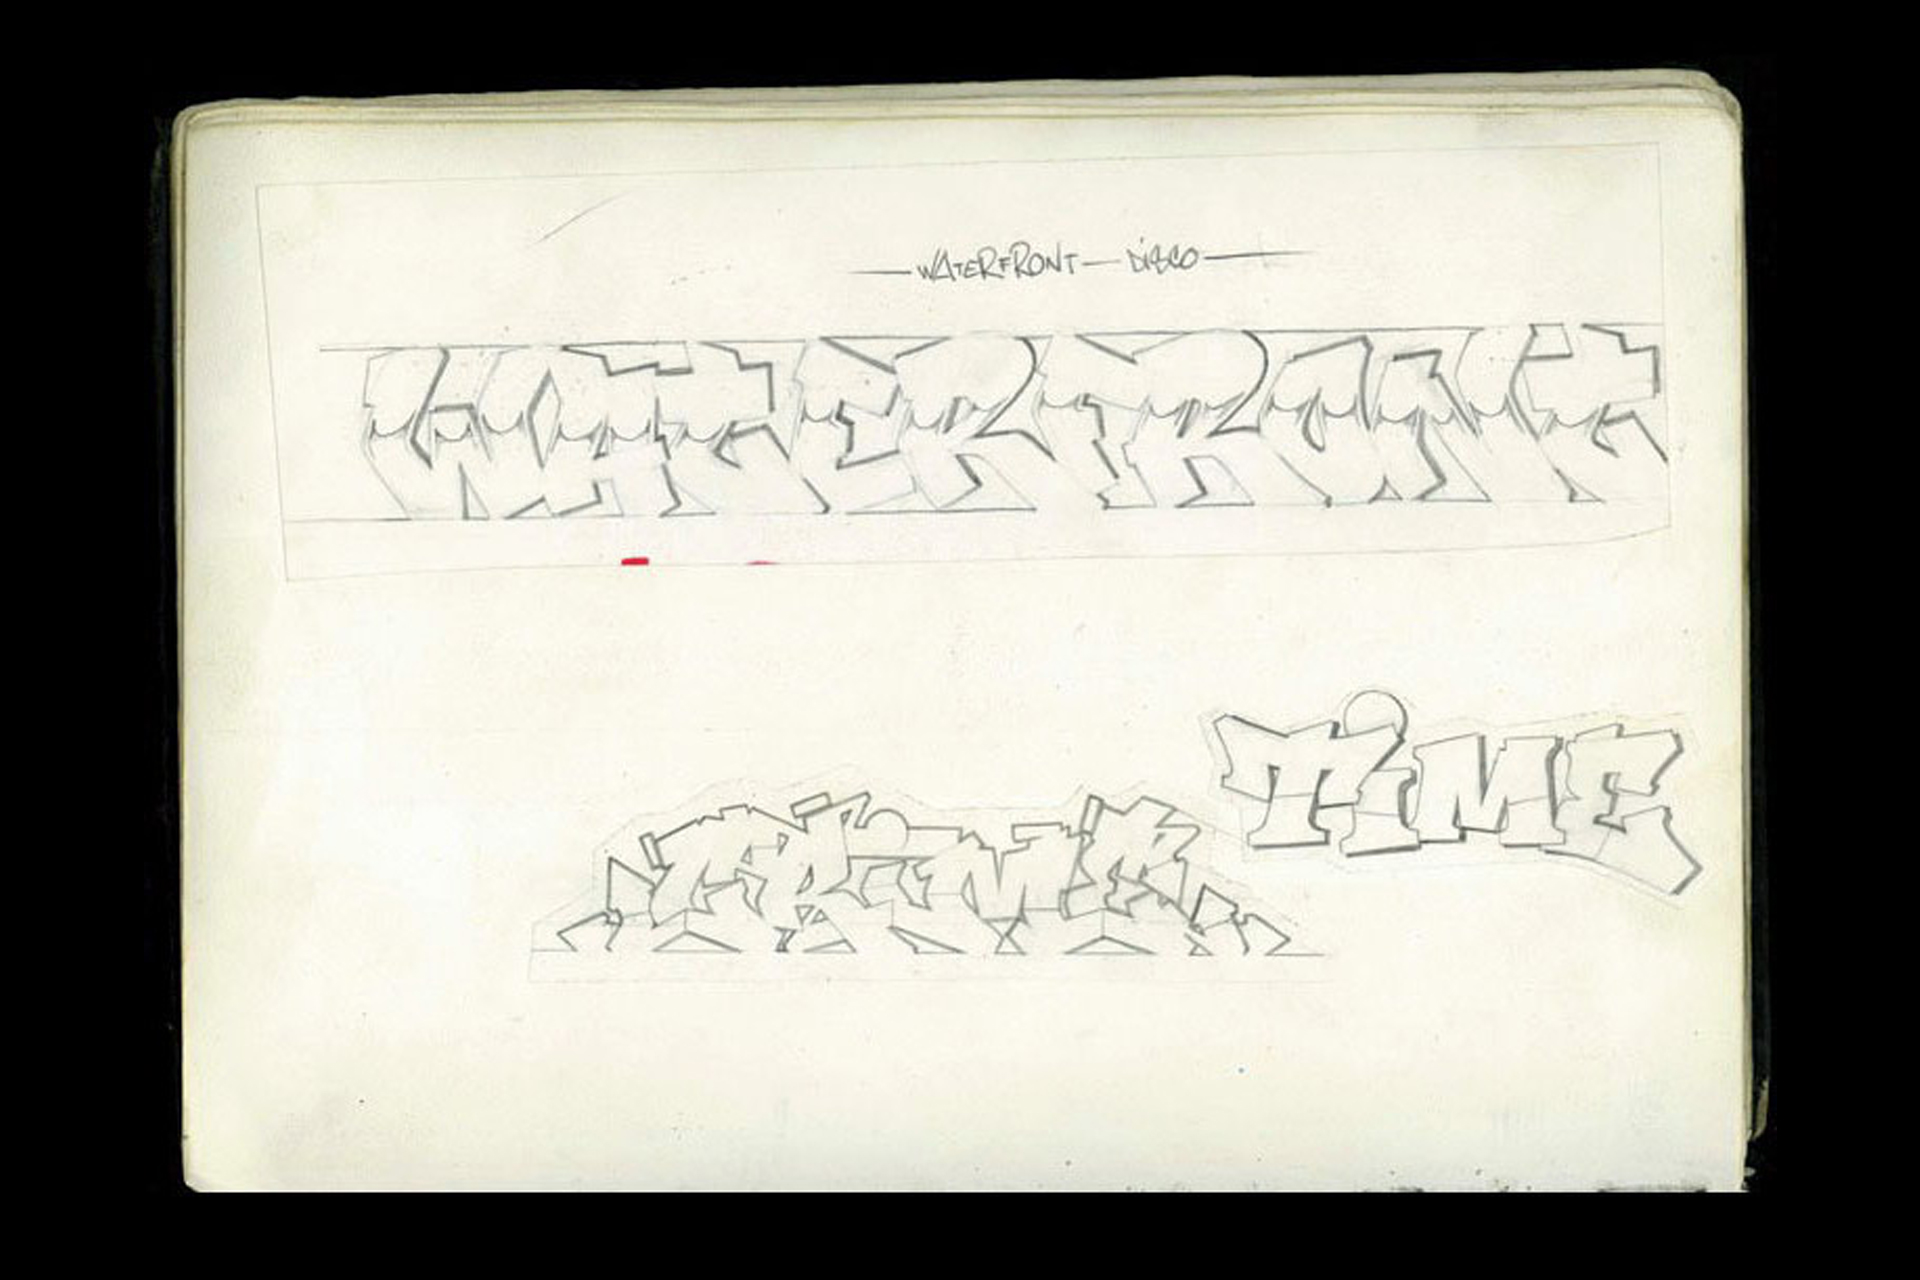 WATERFRONT DiSCO
WATERFRONT
TiME
CRiME